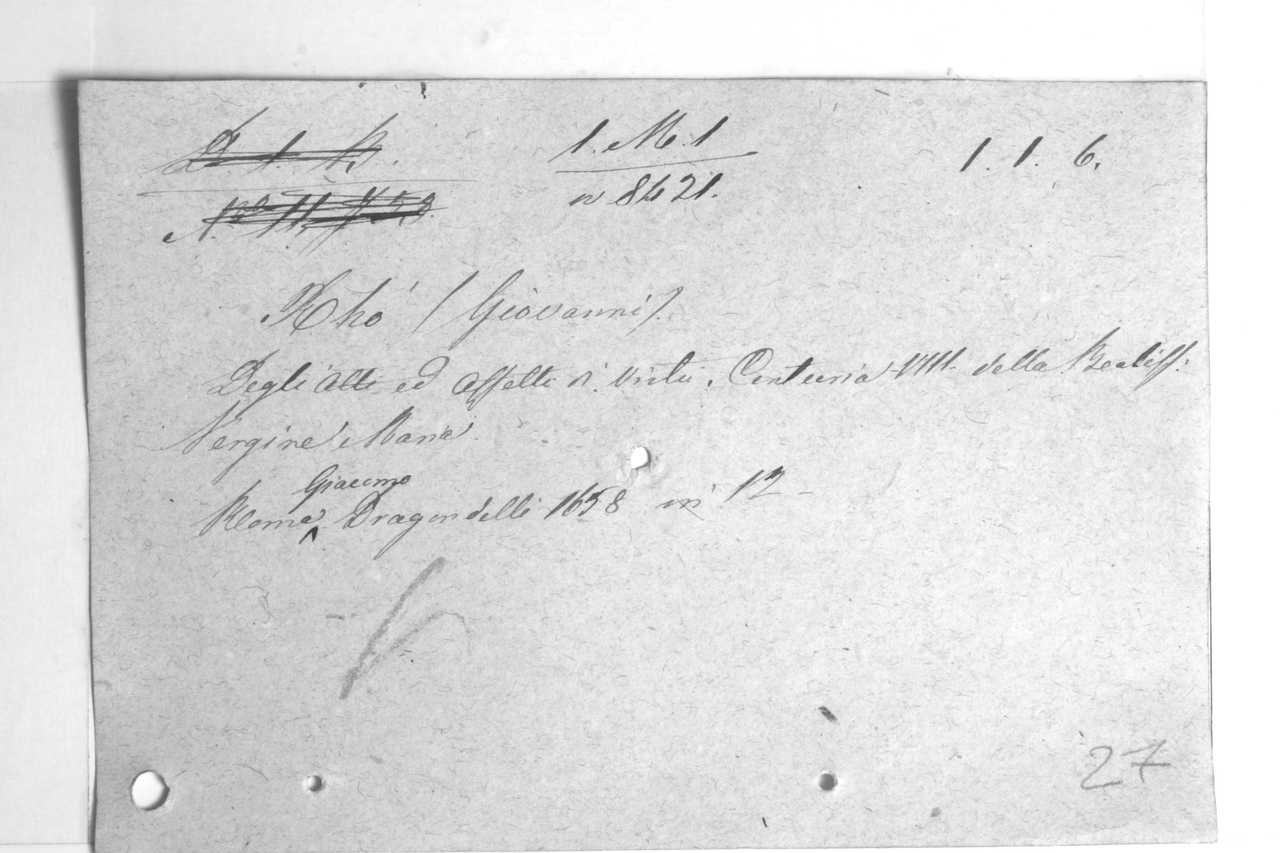 1. M. 1
n 8421.
1. 1. 6.
Rhó (Giovanni).
Degli atti ed affetti di virtù. Centuria VIII. della Beatiss:
Vergine Maria.
Giacomo
Roma Dragondelli 1658 in 12
27